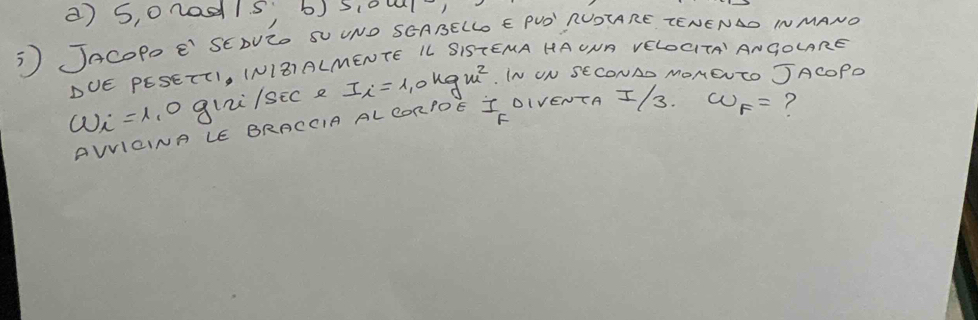 a) 5,0 rad/s; b) 5,0
5) JACOPO E' SEDUTO SU UNO SGABELLO E PUO' RUOTARE TENENDO IN MANO
DUE PESETTI, INIZIALMENTE IL SISTEMA HA UNA VELOCITA' ANGOLARE
ωi = 1,0 giri/SEC e Ii = 1,0 kgm². IN UN SECONDO MOMENTO JACOPO
AVVICINA LE BRACCIA AL CORPO E IF DIVENTA I/3. ωF = ?